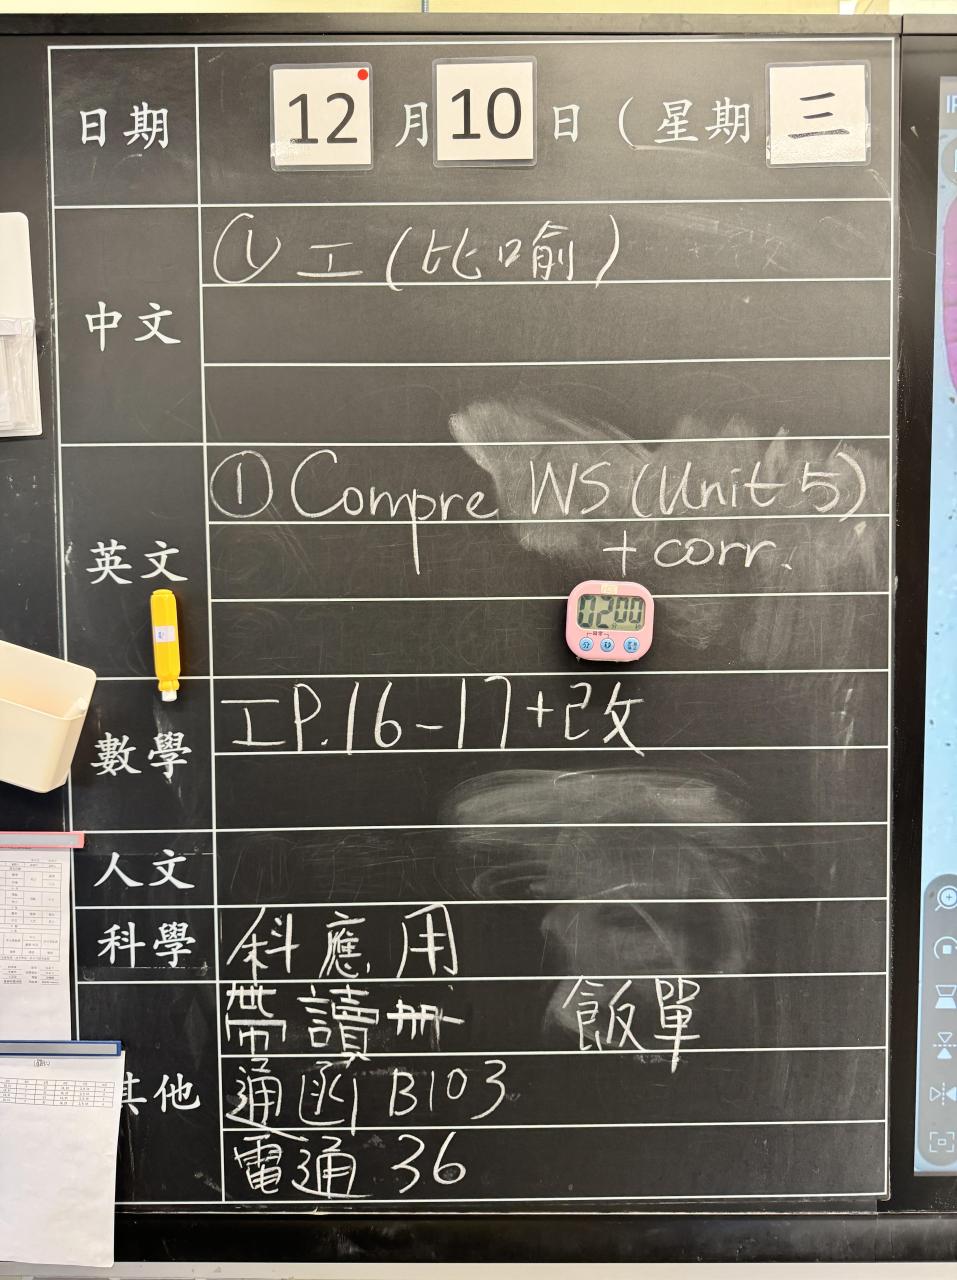 日期 12 月 10 日 ( 星期 三
中文 ① 工 (比喻)
英文 ① Compre WS (Unit 5)
+ corr.
02 00
數學 工 P.16-17+改
人文
科學 科應用
其他 帶讀冊 飯單
通函 B103
電通 36